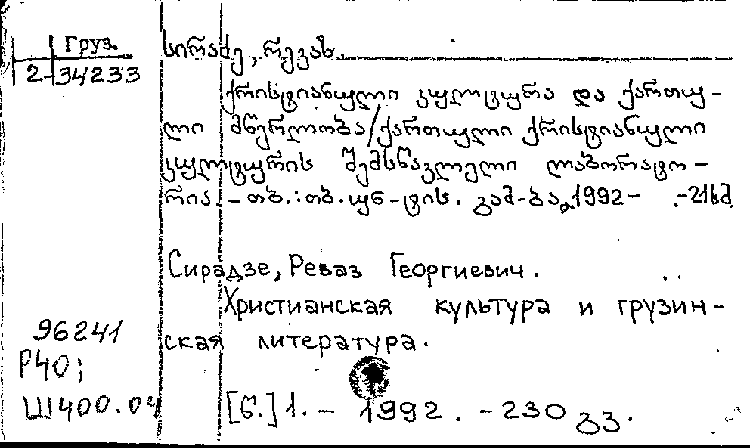 Груз.
2-34233
სირაძე, რევაზ.
ქრისტიანული კულტურა და ქართუ-
ლი მწერლობა/ქართული ქრისტიანული
კულტურის შემსწავლელი ლაბორატო-
რია. – თბ.: თბ. უნ-ტის. გამ-ბა, 1992 – -21სმ
Сирадзе, Реваз Георгиевич.
Христианская культура и грузин-
ская литература.
96241
Р40;
Ш400.04
[წ.] 1. – 1992. – 230 გვ.